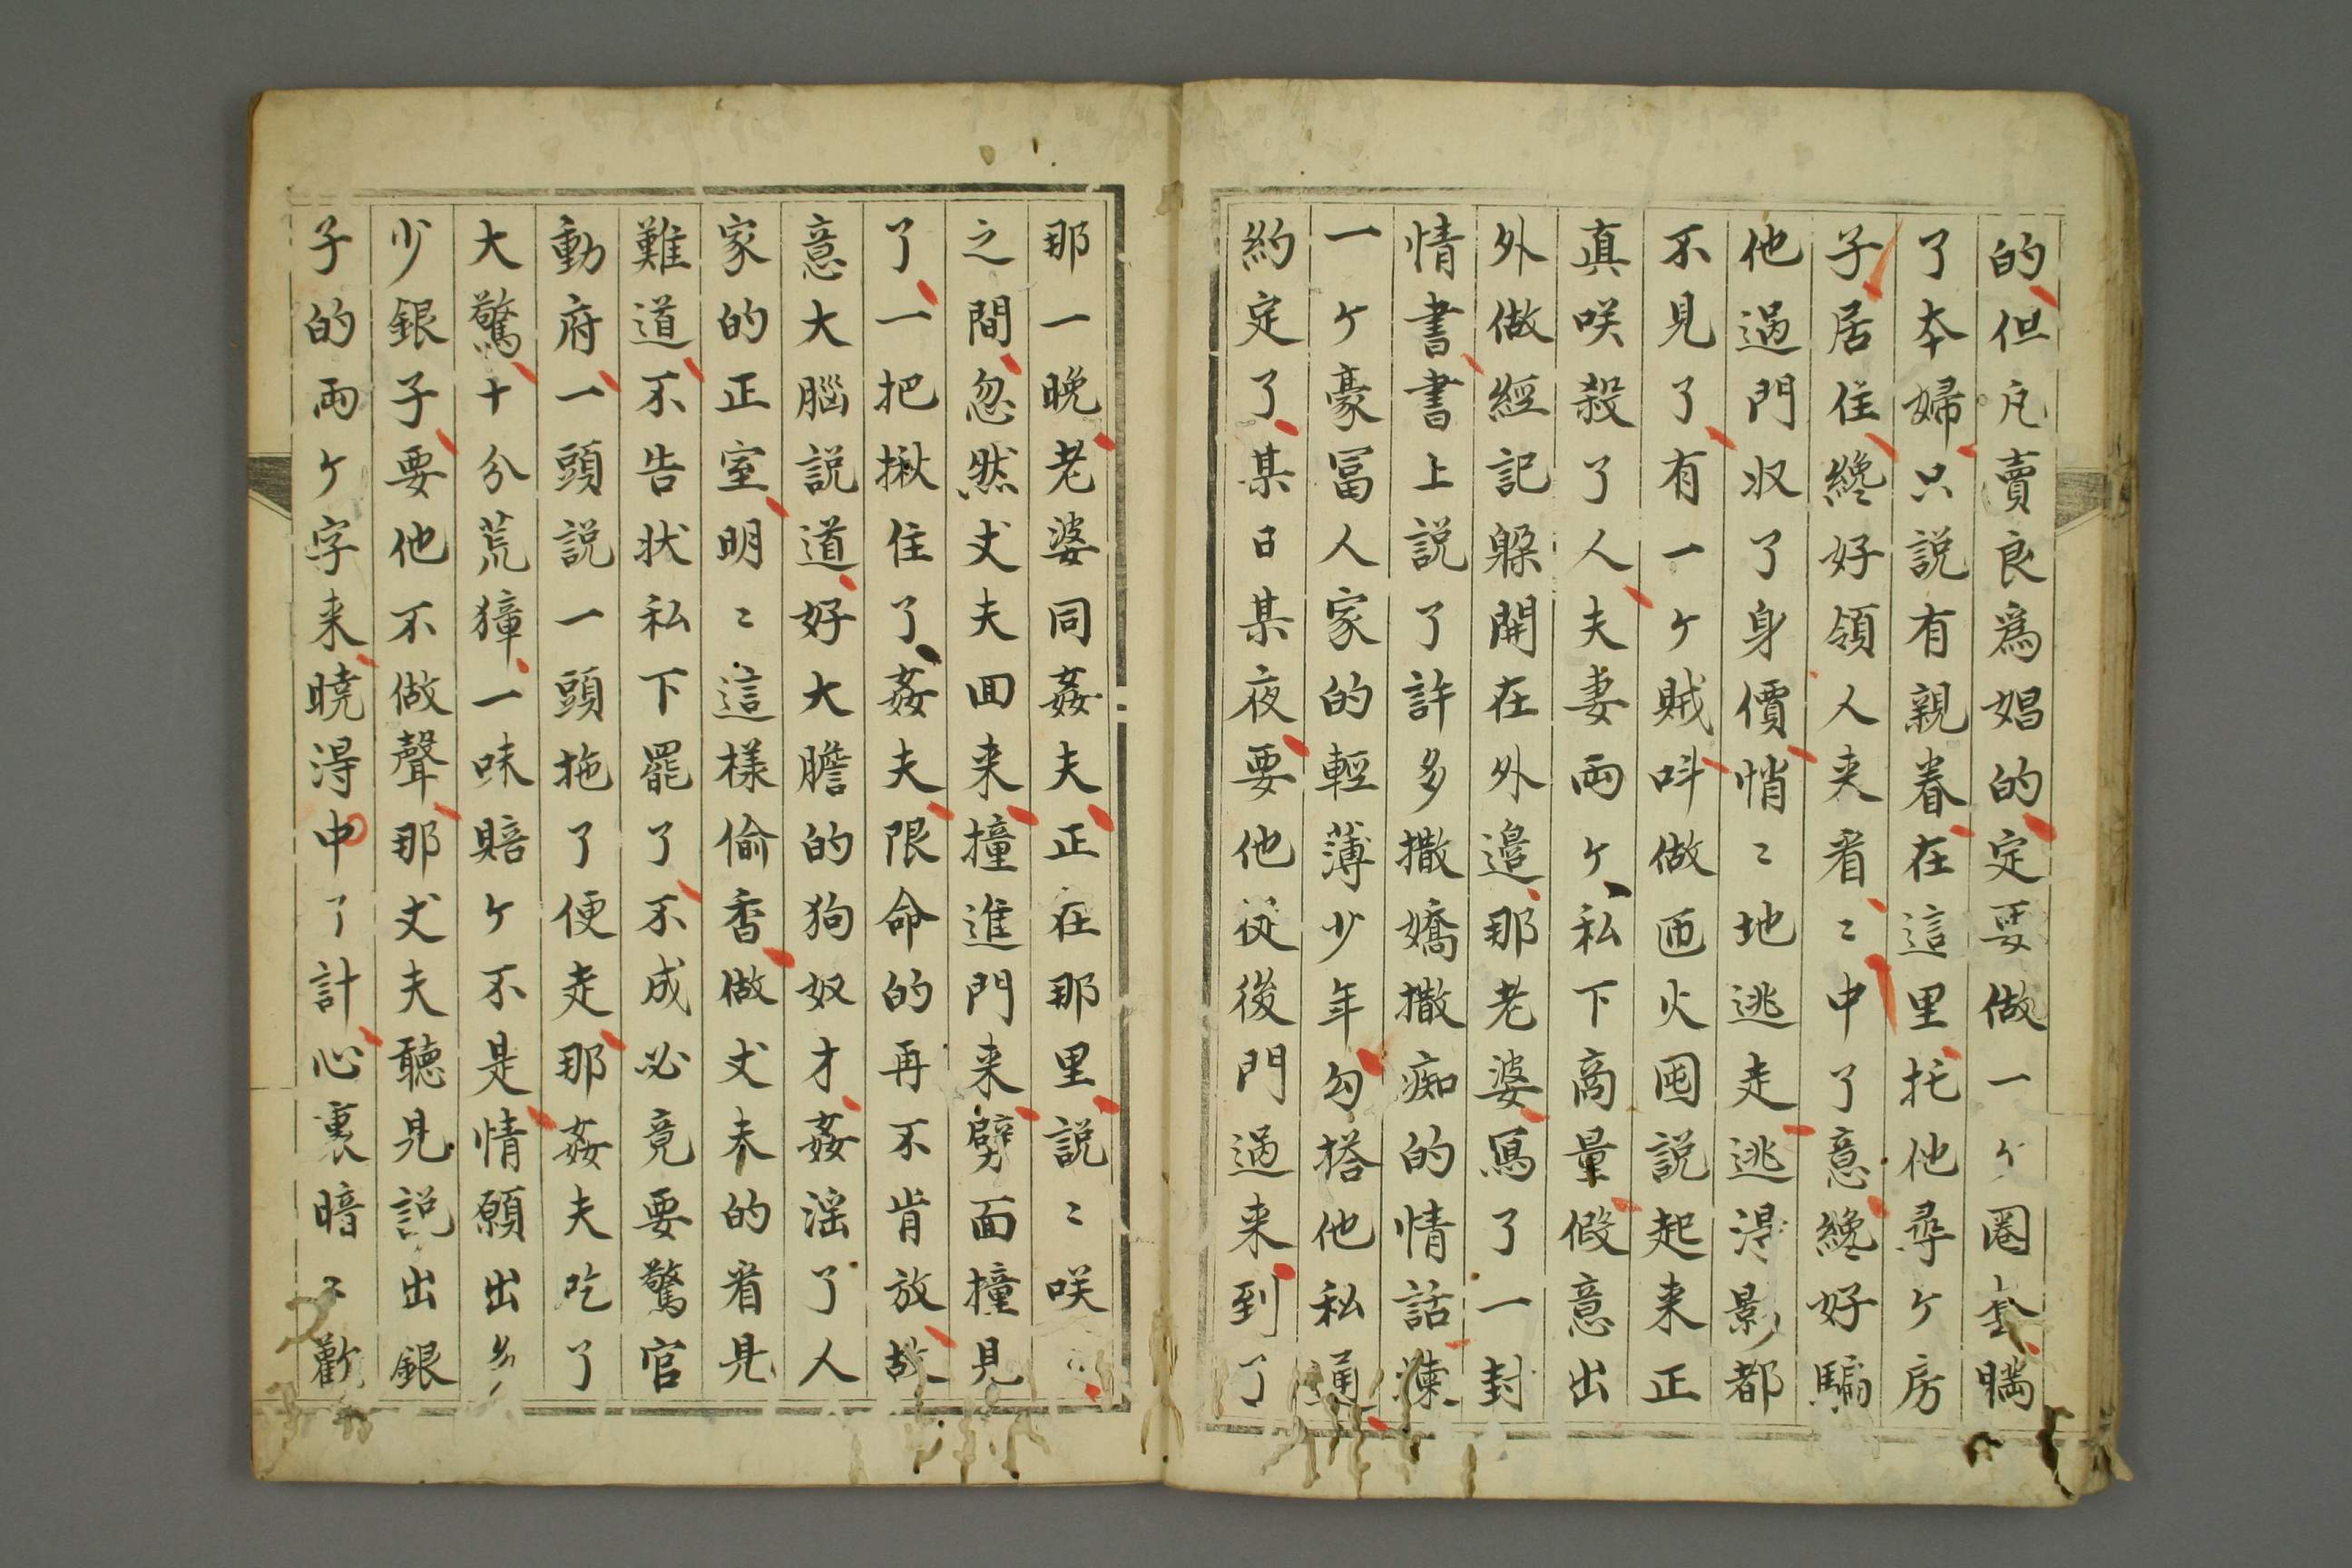 的但凢賣良爲娼的定要做一ケ圏套瞞
了本婦只説有親眷在這里托他尋ケ房
子居住纔好領人来看〻中了意纔好騙
他過門收了身價悄〻地逃走逃得影都
不見了有一ケ賊叫做西火囤説起来正
真咲殺了人夫妻両ケ私下啇量假意出
外做經記躲開在外邉那老婆寫了一封
情書書上説了許多撒嬌撒痴的情話
一ケ豪冨人家的輕薄少年勾搭他私通
約定了某日某夜要他従後門過来到了
那一晩老婆同姦夫正在那里説〻咲〻
之間忽然丈夫回来撞進門来劈面撞見
了一把揪住了姦夫限命的再不肯放故
意大腦説道好大膽的狗奴才姦滛了人
家的正室明〻這様偷香做丈夫的看見
難道不告状私下罷了不成必竟要驚官
動府一頭説一頭拖了便走那姦夫吃了
大驚十分荒獐一味賠ケ不是情願出多
少銀子要他不做聲那丈夫聽見説出銀
子的両ケ字来曉得中了計心裏暗〻歡